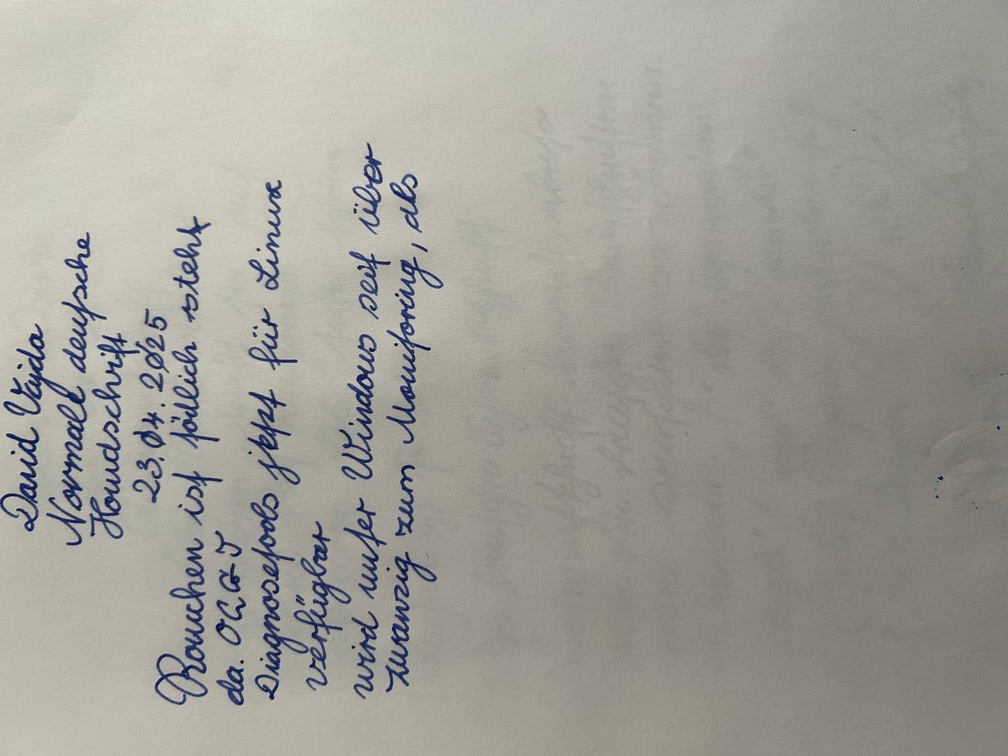 David Vajda
Normale deutsche
Handschrift
23.04.2025
Rauchen ist tödlich steht
da.
Diagnosetools jetzt für Linux
verfügbar
wird unter Windows seit über
zwanzig zum Monitoring, als